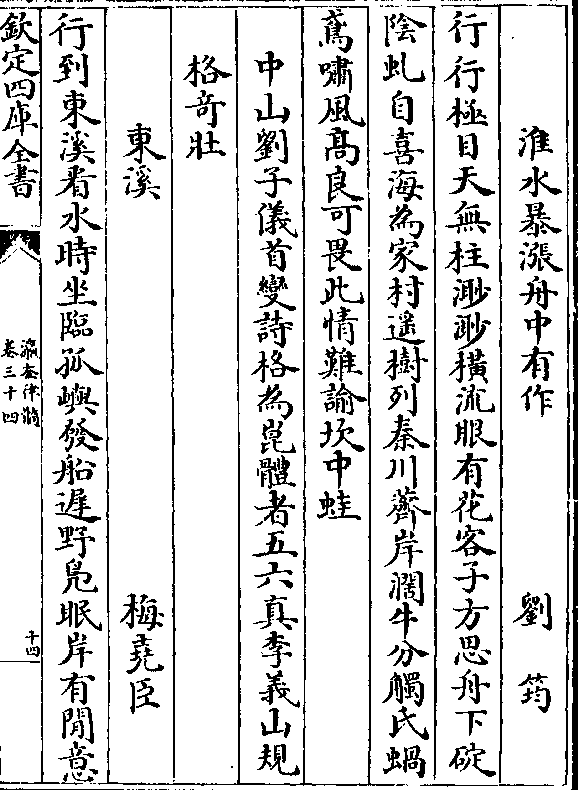 淮水暴漲舟中有作　劉筠
行行極目天無柱渺渺橫流眼有花客子方思舟下碇
陰虬自喜海為家村遥樹列秦川薺岸濶牛分觸氏蝸
鳶嘯風髙良可畏此情難論坎中蛙
中山劉子儀首變詩格為崑體者五六真李義山規
格竒壯
東溪　梅堯臣
行到東溪看水時坐臨孤嶼發船遲野鳬眠岸有閒意
欽定四庫全書
瀛奎律髓
卷三十四
十四